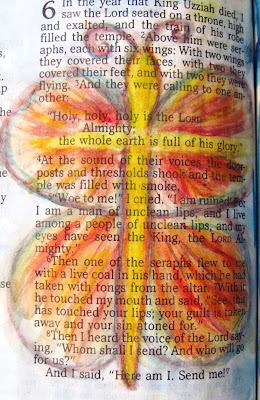 6 In the year that King Uzziah died, I
saw the Lord seated on a throne, high
and exalted, and the train of his robe
filled the temple. 2Above him were ser-
aphs, each with six wings: With two wings
they covered their faces, with two they
covered their feet, and with two they were
flying. 3And they were calling to one an-
other:
"Holy, holy, holy is the LORD
Almighty;
the whole earth is full of his glory."
4At the sound of their voices the door-
posts and thresholds shook and the tem-
ple was filled with smoke.
5"Woe to me!" I cried. "I am ruined! For
I am a man of unclean lips, and I live
among a people of unclean lips, and my
eyes have seen the King, the LORD Al-
mighty."
6Then one of the seraphs flew to me
with a live coal in his hand, which he had
taken with tongs from the altar. 7With it
he touched my mouth and said, "See, this
has touched your lips; your guilt is taken
away and your sin atoned for."
8Then I heard the voice of the Lord say-
ing, "Whom shall I send? And who will go
for us?"
And I said, "Here am I. Send me!"